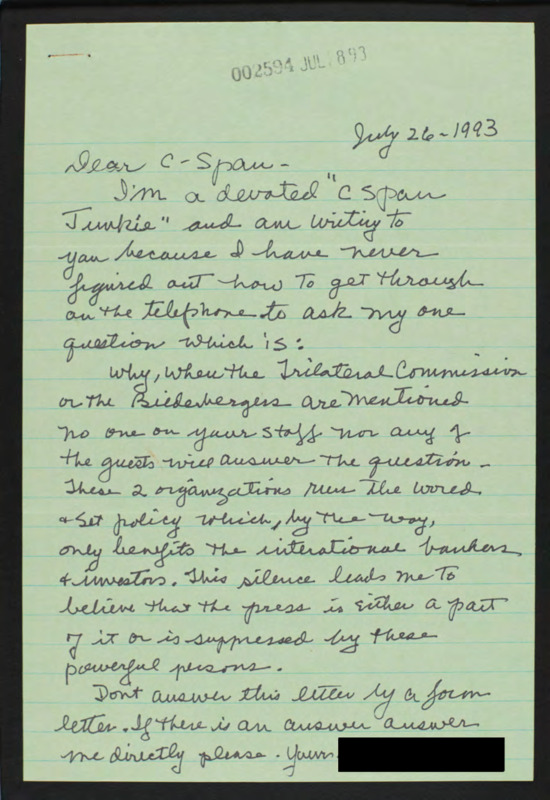 002594 JUL. 893
July 26-1993
Dear C-Span-
I'm a devoted "C Span
Junkie" and am writing to
you because I have never
figured out how to get through
on the telephone to ask my one
question which is:
Why, when the Trilateral Commission
or the Biederbergers are mentioned
no one on your staff nor any of
the guests will answer the question-
These 2 organizations run the world
& set policy which, by the way,
only benefits the interational bankers
& investors. This silence leads me to
believe that the press is either a part
of it or is suppressed by these
powerful persons.
Dont answer this letter by a form
letter. If there is an answer answer
me directly please. Yours